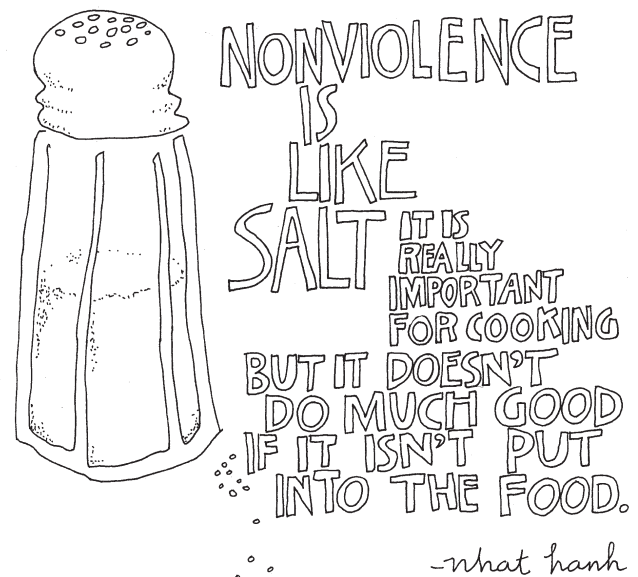 NONVIOLENCE
IS
LIKE
SALT
IT IS
REALLY
IMPORTANT
FOR COOKING
BUT IT DOESN'T
DO MUCH GOOD
IF IT ISN'T PUT
INTO THE FOOD.
-nhat hanh